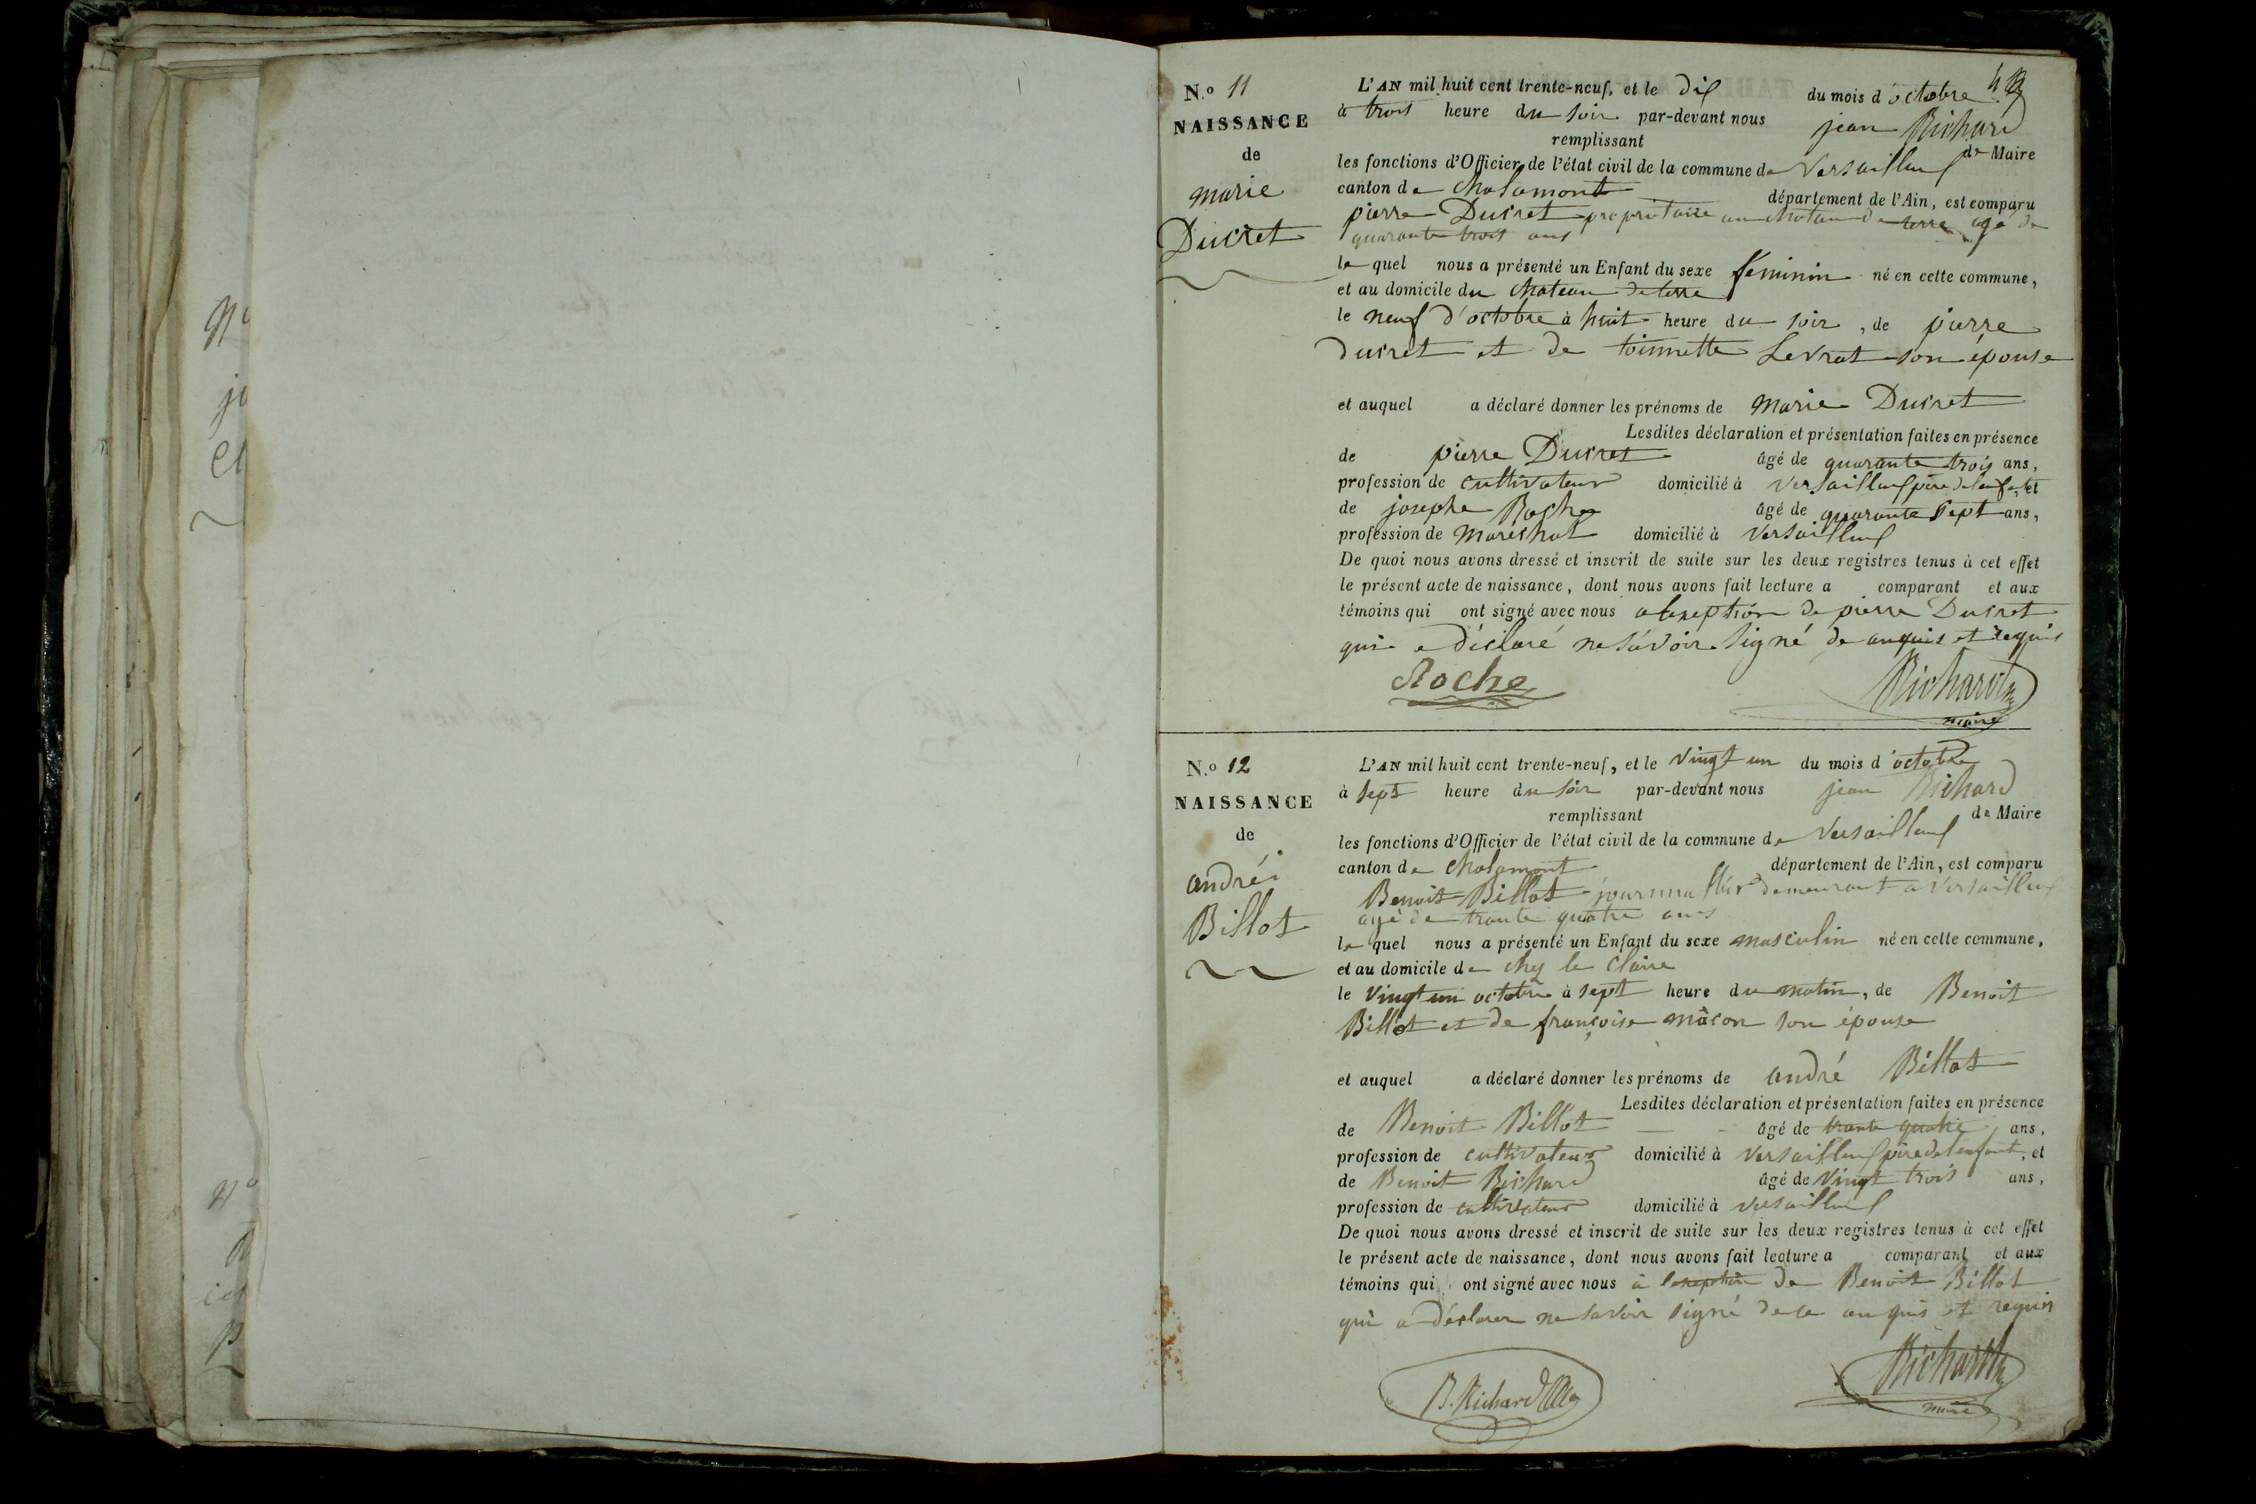 N.o 11
NAISSANCE
de
marie
Ducret
L'AN mil huit cent trente-neuf, et le dix du mois d'octobre
à trois heure du soir par-devant nous jean Richard
remplissant
les fonctions d'Officier de l'état civil de la commune de Versailleux de Maire
canton de chalamont département de l'Ain, est comparu
pierre Ducret propriétaire au chateau de terre agé de
quarante trois ans
le quel nous a présenté un Enfant du sexe féminin né en cette commune,
et au domicile du chateau de terre
le neuf d'octobre à huit heure du soir, de pierre
ducret et de toinnette Levrat son épouse
et auquel a déclaré donner les prénoms de marie Ducret
Lesdites déclaration et présentation faites en présence
de pierre Ducret âgé de quarante trois ans,
profession de cultivateur domicilié à Versailleux père de lenfant, et
de josephe Roche âgé de quarante sept ans,
profession de marechal domicilié à Versailleux
De quoi nous avons dressé et inscrit de suite sur les deux registres tenus à cet effet
le présent acte de naissance, dont nous avons fait lecture a comparant et aux
témoins qui ont signé avec nous a lexeption de pierre Ducret
qui a déclaré ne savoir signé de enquis et requis
Roche Richard
maire
N.o 12
NAISSANCE
de
andréi
Billot
L'AN mil huit cent trente-neuf, et le vingt un du mois d'octobre
à sept heure du soir par-devant nous jean Richard
remplissant
les fonctions d'Officier de l'état civil de la commune de Versailleux de Maire
canton de chalamont département de l'Ain, est comparu
Benoit Billot demeurant a Versailleux
agé de trante quatre ans
le quel nous a présenté un Enfant du sexe masculin né en cette commune,
et au domicile de chez le claire
le vingt un octobre à sept heure du matin, de Benoit
Billot et de françoise mâcon son épouse
et auquel a déclaré donner les prénoms de andré Billot
Lesdites déclaration et présentation faites en présence
de Benoit Billot âgé de trante quatre ans,
profession de cultivateur domicilié à Versailleux père de lenfant, et
de Benoit Richard âgé de vingt trois ans,
profession de cultivateur domicilié à Versailleux
De quoi nous avons dressé et inscrit de suite sur les deux registres tenus à cet effet
le présent acte de naissance, dont nous avons fait lecture a comparant et aux
témoins qui ont signé avec nous à lexeption de Benoit Billot
qui a déclarer ne savoir signé de ce enquis et requis
B. Richard Richard
maire